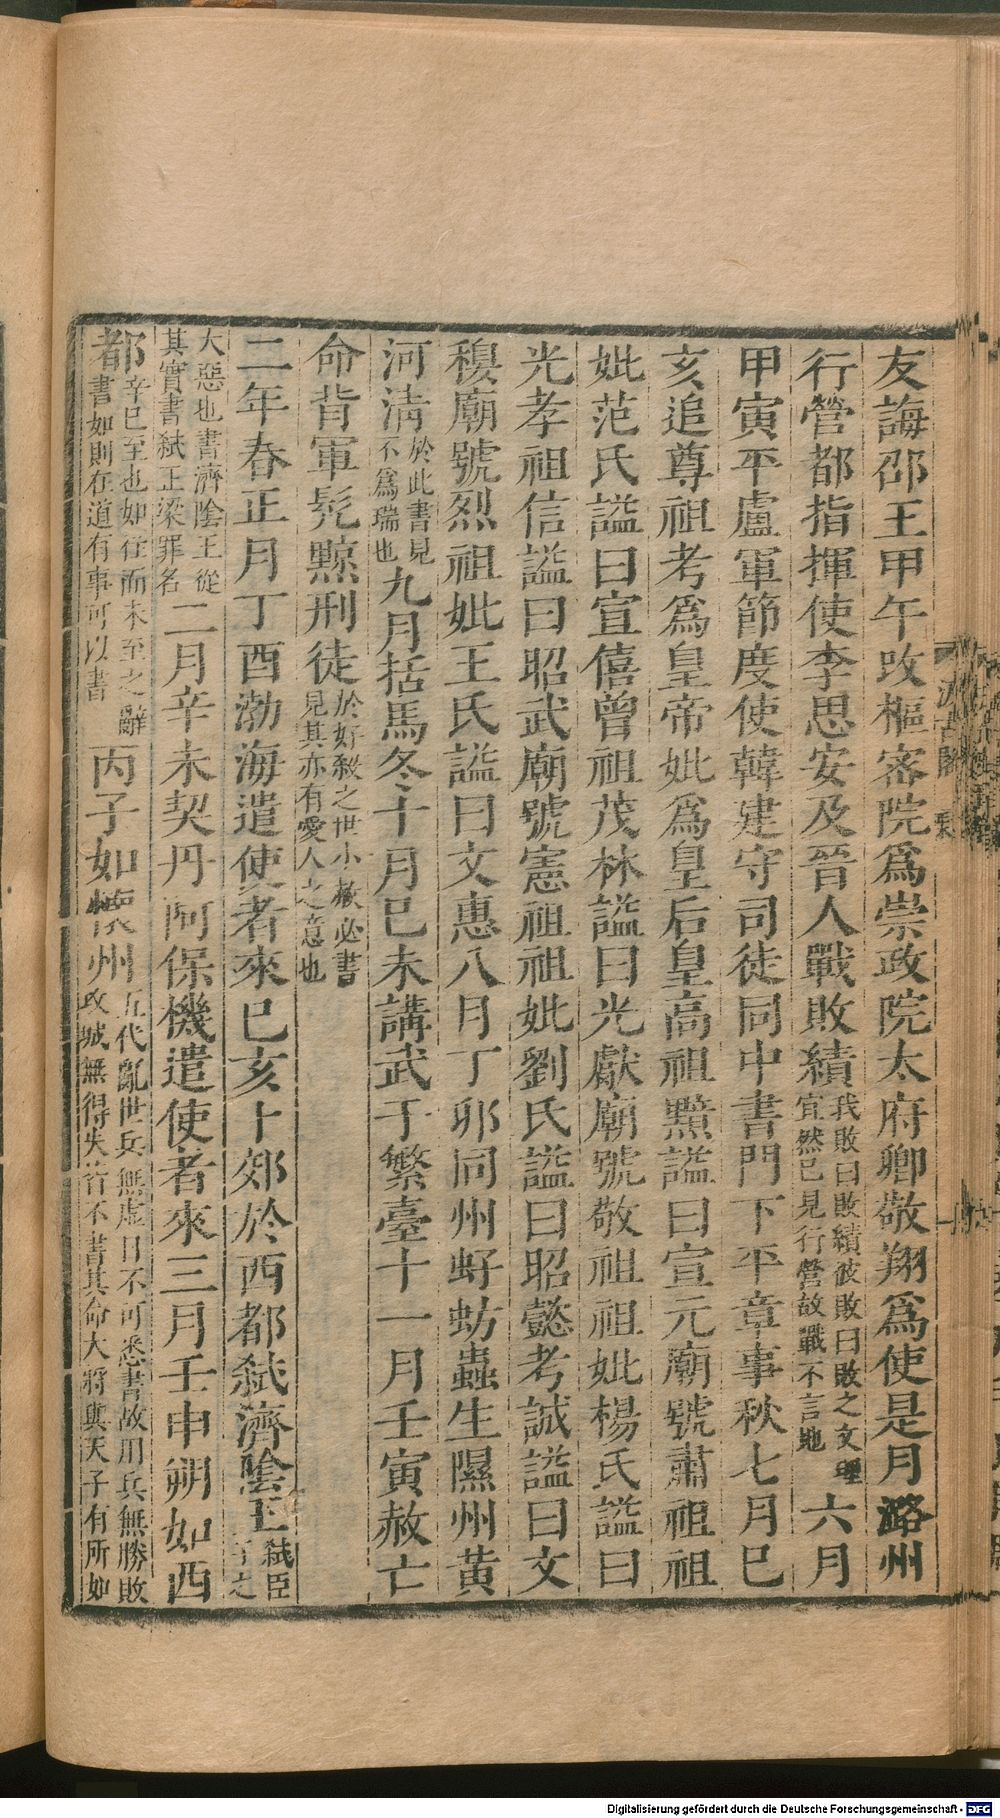 友誨邵王甲午攺樞宻院爲崇政院太府卿敬翔爲使是月潞州
行營都指揮使李思安及晉人戰敗績我敗曰敗績彼敗曰敗之文理宜然已見行營故戰不言地六月
甲寅平盧軍節度使韓建守司徒同中書門下平章事秋七月巳
亥追尊祖考爲皇帝妣爲皇后皇高祖黯謚曰宣元廟號肅祖祖
妣范氏謚曰宣僖曾祖茂林謚曰光獻廟號敬祖祖妣楊氏謚曰
光孝祖信謚曰昭武廟號憲祖祖妣劉氏謚曰昭懿考誠謚曰文
穆廟號烈祖妣王氏謚曰文惠八月丁卯同州虸蚄蟲生隰州黄
河淸於此書見不爲瑞也九月括馬冬十月巳未講武于繁臺十一月壬寅赦亡
命背軍髠黥刑徒於好殺之世小赦必書見其亦有愛人之意也
二年春正月丁酉渤海遣使者來巳亥卜郊於西都弑濟隂王弑臣子之
大惡也書濟隂王從其實書弑正梁罪名二月辛未契丹阿保機遣使者來三月壬申朔如西
都辛巳至也如往而未至之辭書如則在道有事可以書丙子如懷州五代亂世兵無虚日不可悉書故用兵無勝敗攻城無得失皆不書其命大將與天子有所如
汲古閣
Digitalisierung gefördert durch die Deutsche Forschungsgemeinschaft - DFG